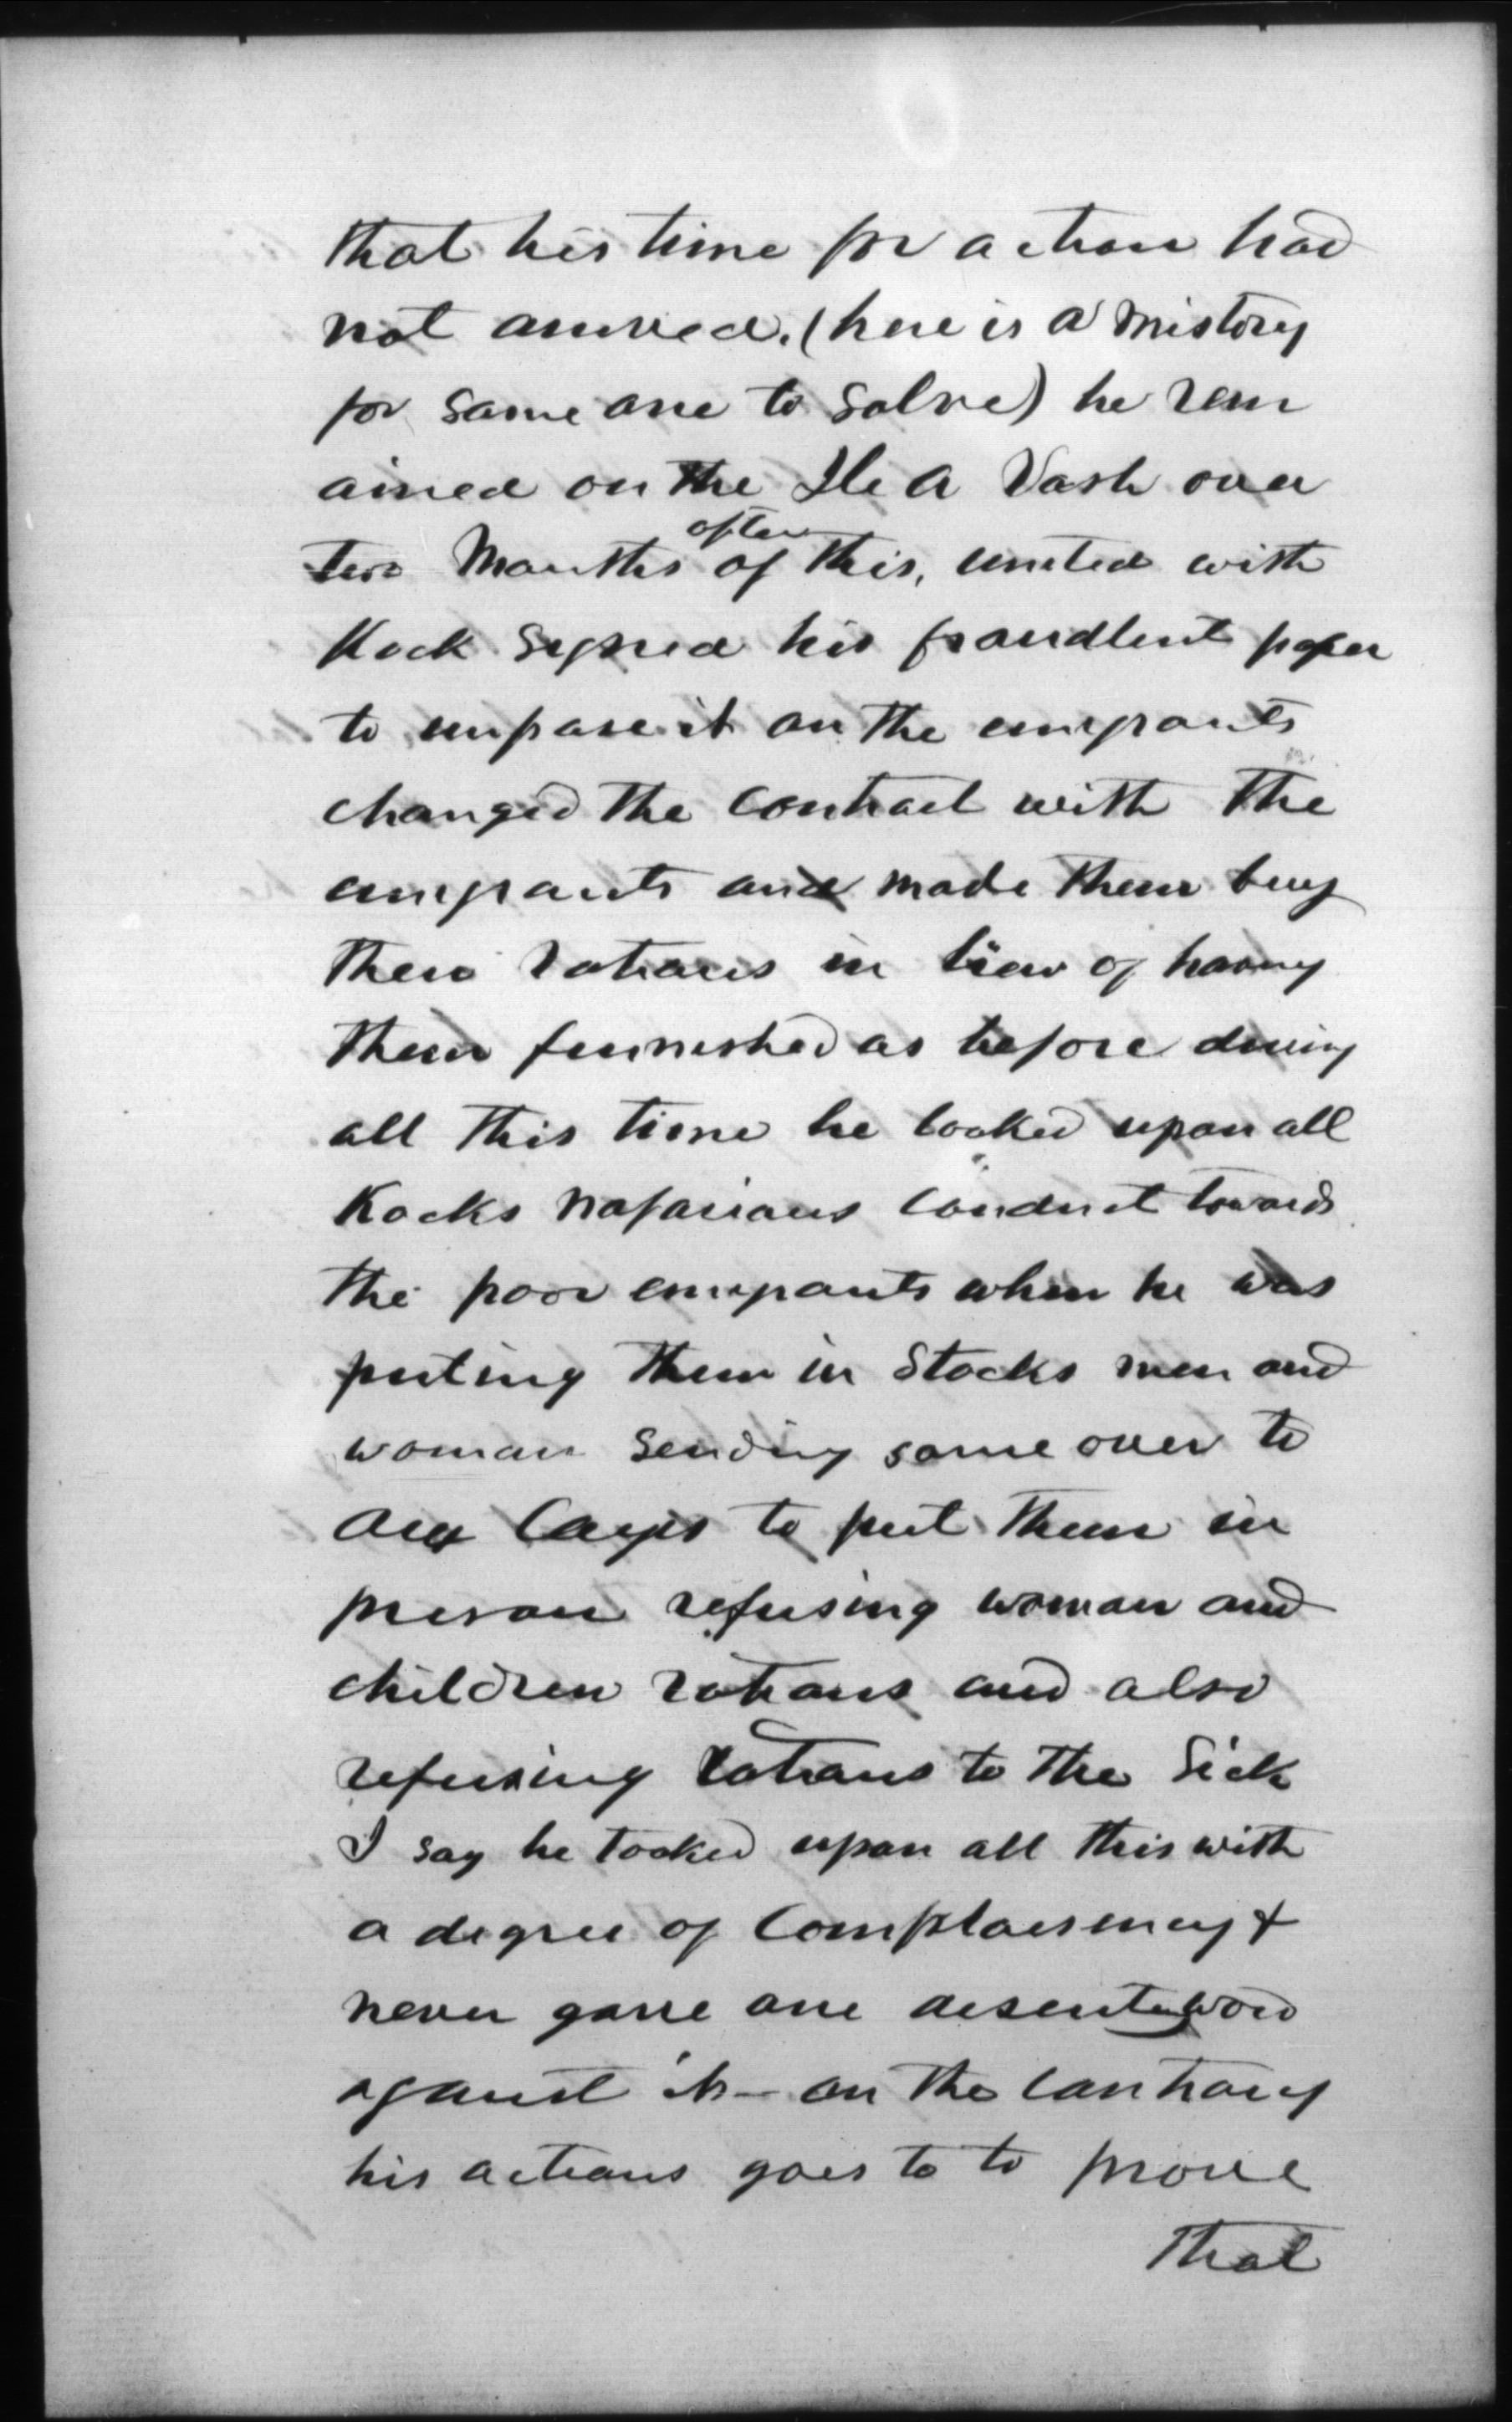 that his time for action had
not arrived. (here is a mistory
for some one to solve) he rem
ained on the Ile A Vash over
two Months after of this, united with
Kock signed his fraudlent paper
to impose it on the emigrants
changed the contract with the
emigrants and made them buy
their rations in liew of having
them furnished as before during
all this time he looked upon all
Kocks nafarious conduct towards
the poor emigrants when he was
puting them in Stocks men and
woman sending some over to
Aux Cayes to put them in
prison refusing woman and
children rations and also
refusing rations to the Sick
I say he looked upon all this with
a degree of complaisency &
never gave one desenting word
against it - on the contrary
his actions goes to to prove
that